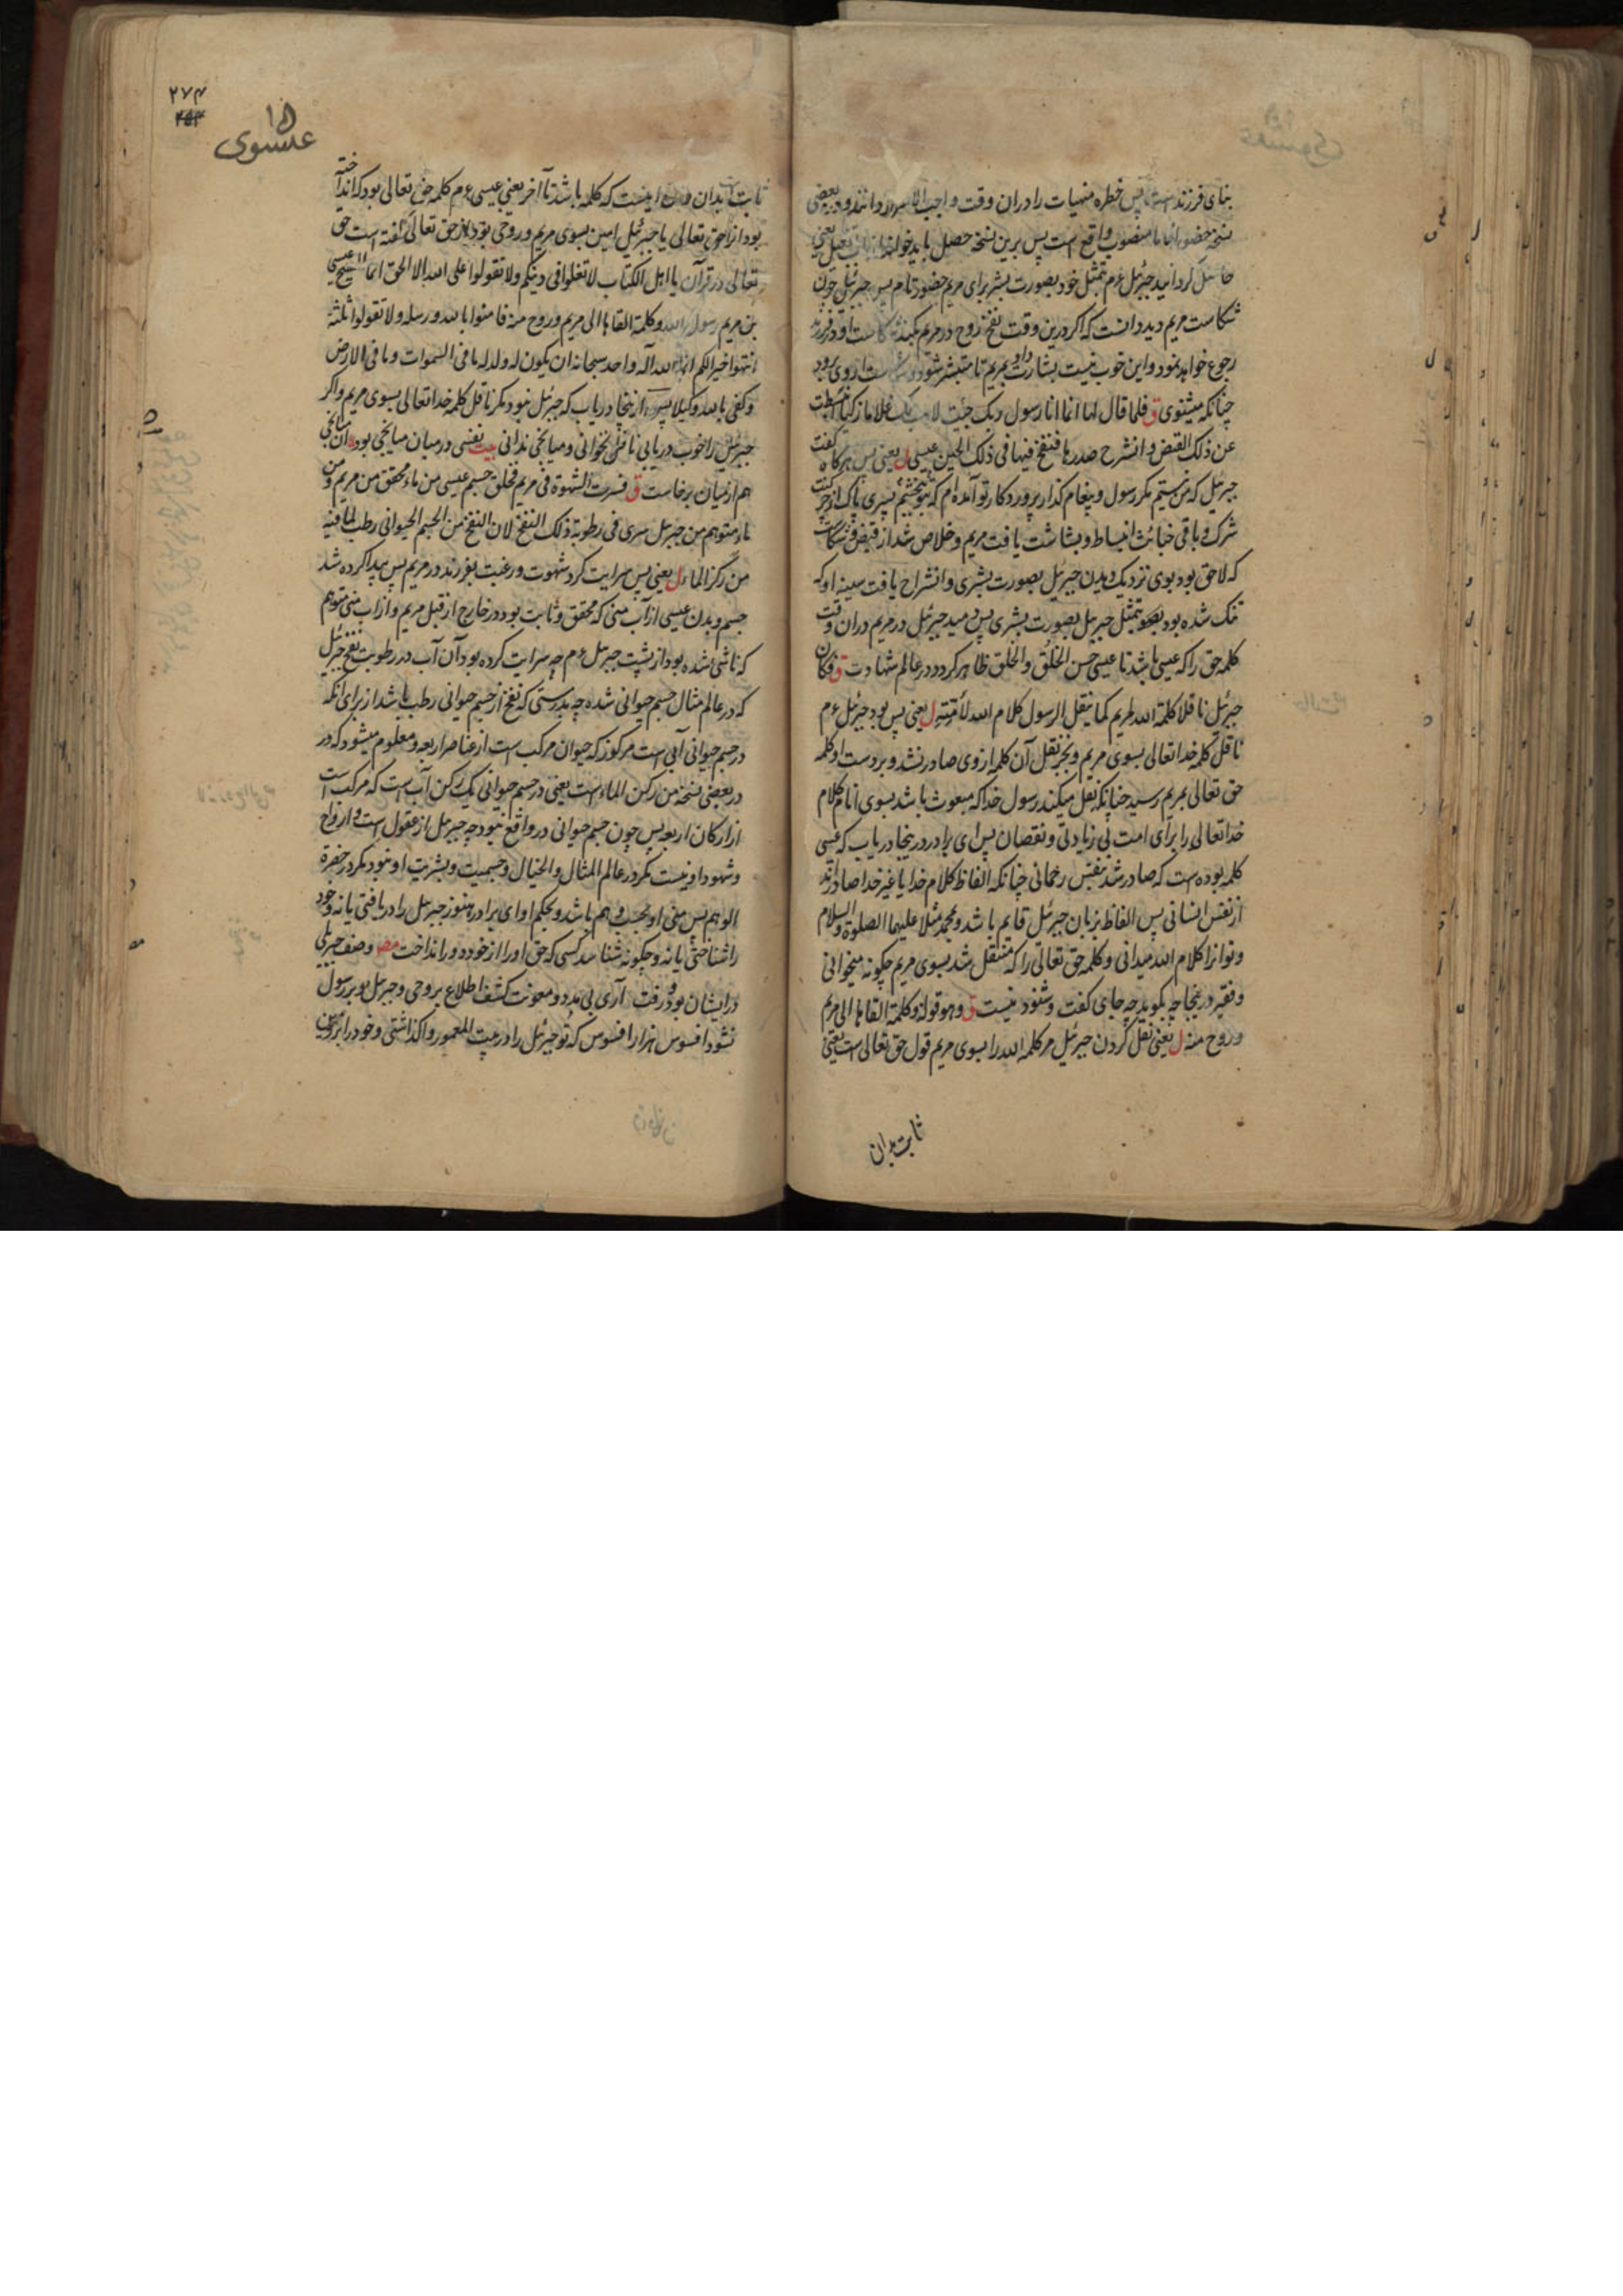 بنای فرزند است پس خطره منهیات را دران وقت واجب الاسرار دانند و در بعضی
نسخه حضورا تاما منصوب واقع است پس برین نسخه حصل باید خواند از باب تفعیل یعنی
حاصل گردانید جبرئیل ع م بتمثل خود بصورت بشر برای مریم حضور تام پس جبرئیل چون
شکاست مریم دید دانست که اگر درین وقت نفخ روح در مریم بکند شکاست او در فرزند
رجوع خواهد نمود و این خوب نیست بشارت داد بمریم تا منبشر شود و شکاست از وی برود
چنانکه میشنوی ق فلما قال لها انما انا رسول ربک جئت لاهب لک غلاما زکیا انبسطت
عن ذلک القبض و انشرح صدرها فنفخ فیها فی ذلک الحین عیسی ل یعنی پس هرگاه گفت
جبرئیل که من نیستم مگر رسول و پیغام گذار پروردگار تو آمده ام که ببخشم پسری پاک از
شرک و باقی خبائث انبساط و بشاشت یافت مریم و خلاص شد از قبض و شکاست
که لاحق بود بوی نزدیک دیدن جبرئیل بصورت بشری و انشراح یافت سینه او که
تنک شده بود بتمثل جبرئیل بصورت بشری پس دمید جبرئیل در مریم دران وقت
کلمه حق را که عیسی باشد تا عیسی حسن الخلق و الخلق ظاهر گردد در عالم شهادت ق فکان
جبرئیل ناقلا کلمة الله لمریم کما ینقل الرسول کلام الله لأمته ل یعنی پس بود جبرئیل ع م
ناقل کلمه خدا تعالی بسوی مریم و بجز نقل آن کلمه از وی صادر نشد و بر دست او کلمه
حق تعالی بمریم رسید چنانکه نقل میکند رسول خدا که مبعوث باشد بسوی انام کلام
خدا تعالی را برای امت بی زیادتی و نقصان پس ای برادر درینجا دریاب که عیسی
کلمه بوده است که صادر شد بنفس رحمانی چنانکه الفاظ کلام خدا یا غیر خدا صادر اند
از نفس انسانی پس الفاظ بزبان جبرئیل قایم باشد و بمحمد مثلا علیهما الصلوة و السلام
و تو آنرا کلام الله میدانی و کلمه حق تعالی را که منتقل شد بسوی مریم چگونه میخوانی
و فقیر درینجا چه بگوید چه جای گفت و شنود نیست ق و هو قوله و کلمة القاها الی مریم
و روح منه ل یعنی نقل کردن جبرئیل مر کلمة الله را بسوی مریم قول حق تعالی است یعنی
ثابت بدان
۲۷۴
۱۵
عیسوی
ثابت بدان اینست که کلمه باشد تا آخر یعنی عیسی ع م کلمه حق تعالی بود که انداخته
بود انرا حق تعالی یا جبرئیل امین بسوی مریم و روحی بود از حق تعالی گفته است حق
تعالی در قرآن یا اهل الکتاب لا تغلوا فی دینکم ولا تقولوا علی الله الا الحق انما المسیح عیسی
بن مریم رسول الله و کلمة القاها الی مریم و روح منه فامنوا بالله و رسله ولا تقولوا ثلثة
انتهوا خیرا لکم انما الله اله واحد سبحانه ان یکون له ولد له ما فی السموات و ما فی الارض
و کفی بالله وکیلا پس ازینجا دریاب که جبرئیل نبود مگر ناقل کلمه خدا تعالی بسوی مریم و اگر
جبرئیل را خوب دریابی ناقل نخوانی و میانجی ندانی بیت نفسی در میان میانجی بود آن میانجی
هم از میان برخاست ق فسرت الشهوة فی مریم فخلق جسم عیسی من ماء محقق من مریم و من
ماء متوهم من جبرئیل سری فی رطوبة ذلک النفخ لان النفخ من الجسم الحیوانی رطب لما فیه
من رکز الماء ل یعنی پس سرایت کرد شهوت و رغبت بفرزند در مریم پس پیدا کرده شد
جسم و بدن عیسی از آب منی که محقق و ثابت بود در خارج از قبل مریم و از آب منی متوهم
که ناشی شده بود از پشت جبرئیل ع م چه سرایت کرده بود آن آب در رطوبت نفخ جبرئیل
که در عالم مثال جسم حیوانی شده چه بدرستی که نفخ از جسم حیوانی رطب باشد از برای آنکه
در جسم حیوانی آبی است مرکوز که حیوان مرکب است از عناصر اربعه و معلوم میشود که در
در بعضی نسخه من رکن الماء است یعنی در جسم حیوانی یک رکن آب است که مرکب است
از ارکان اربعه پس چون جسم حیوانی در واقع نبود چه جبرئیل از عقول است و ارواح
و شهود او نیست مگر در عالم المثال و الخیال و جسمیت و بشریت او نبود مگر در حضرة
الوهم پس منی او بحسب وهم باشد و بحکم او ای برادر هنوز جبرئیل را دریافتی یا نه و خود
را شناختی یا نه و چگونه شناسد کسی که حق او را از خود دور انداخت مصـ وصف جبریلی
در ایشان بود و رفت آری بی مدد و معونت کشف اطلاع بر وحی و جبرئیل و بر رسول
نشود افسوس هزار افسوس که تو جبرئیل را در بیت المعمور واگذاشتی و خود را